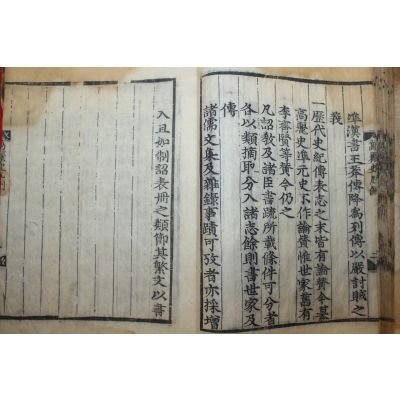 準漢書王莽傳降爲列傳以嚴討賊之
義
一歷代史紀傳表志之末皆有論贊今纂
高麗史準元史不作論贊惟世家舊有
李齊賢等贊今仍之
凡詔敎及諸臣書疏所載條件可分者
各以類摘取分入諸志餘則書世家及
傳
諸儒文集及雜錄事蹟可攷者亦採增
入且如制詔表冊之類節其繁文以書